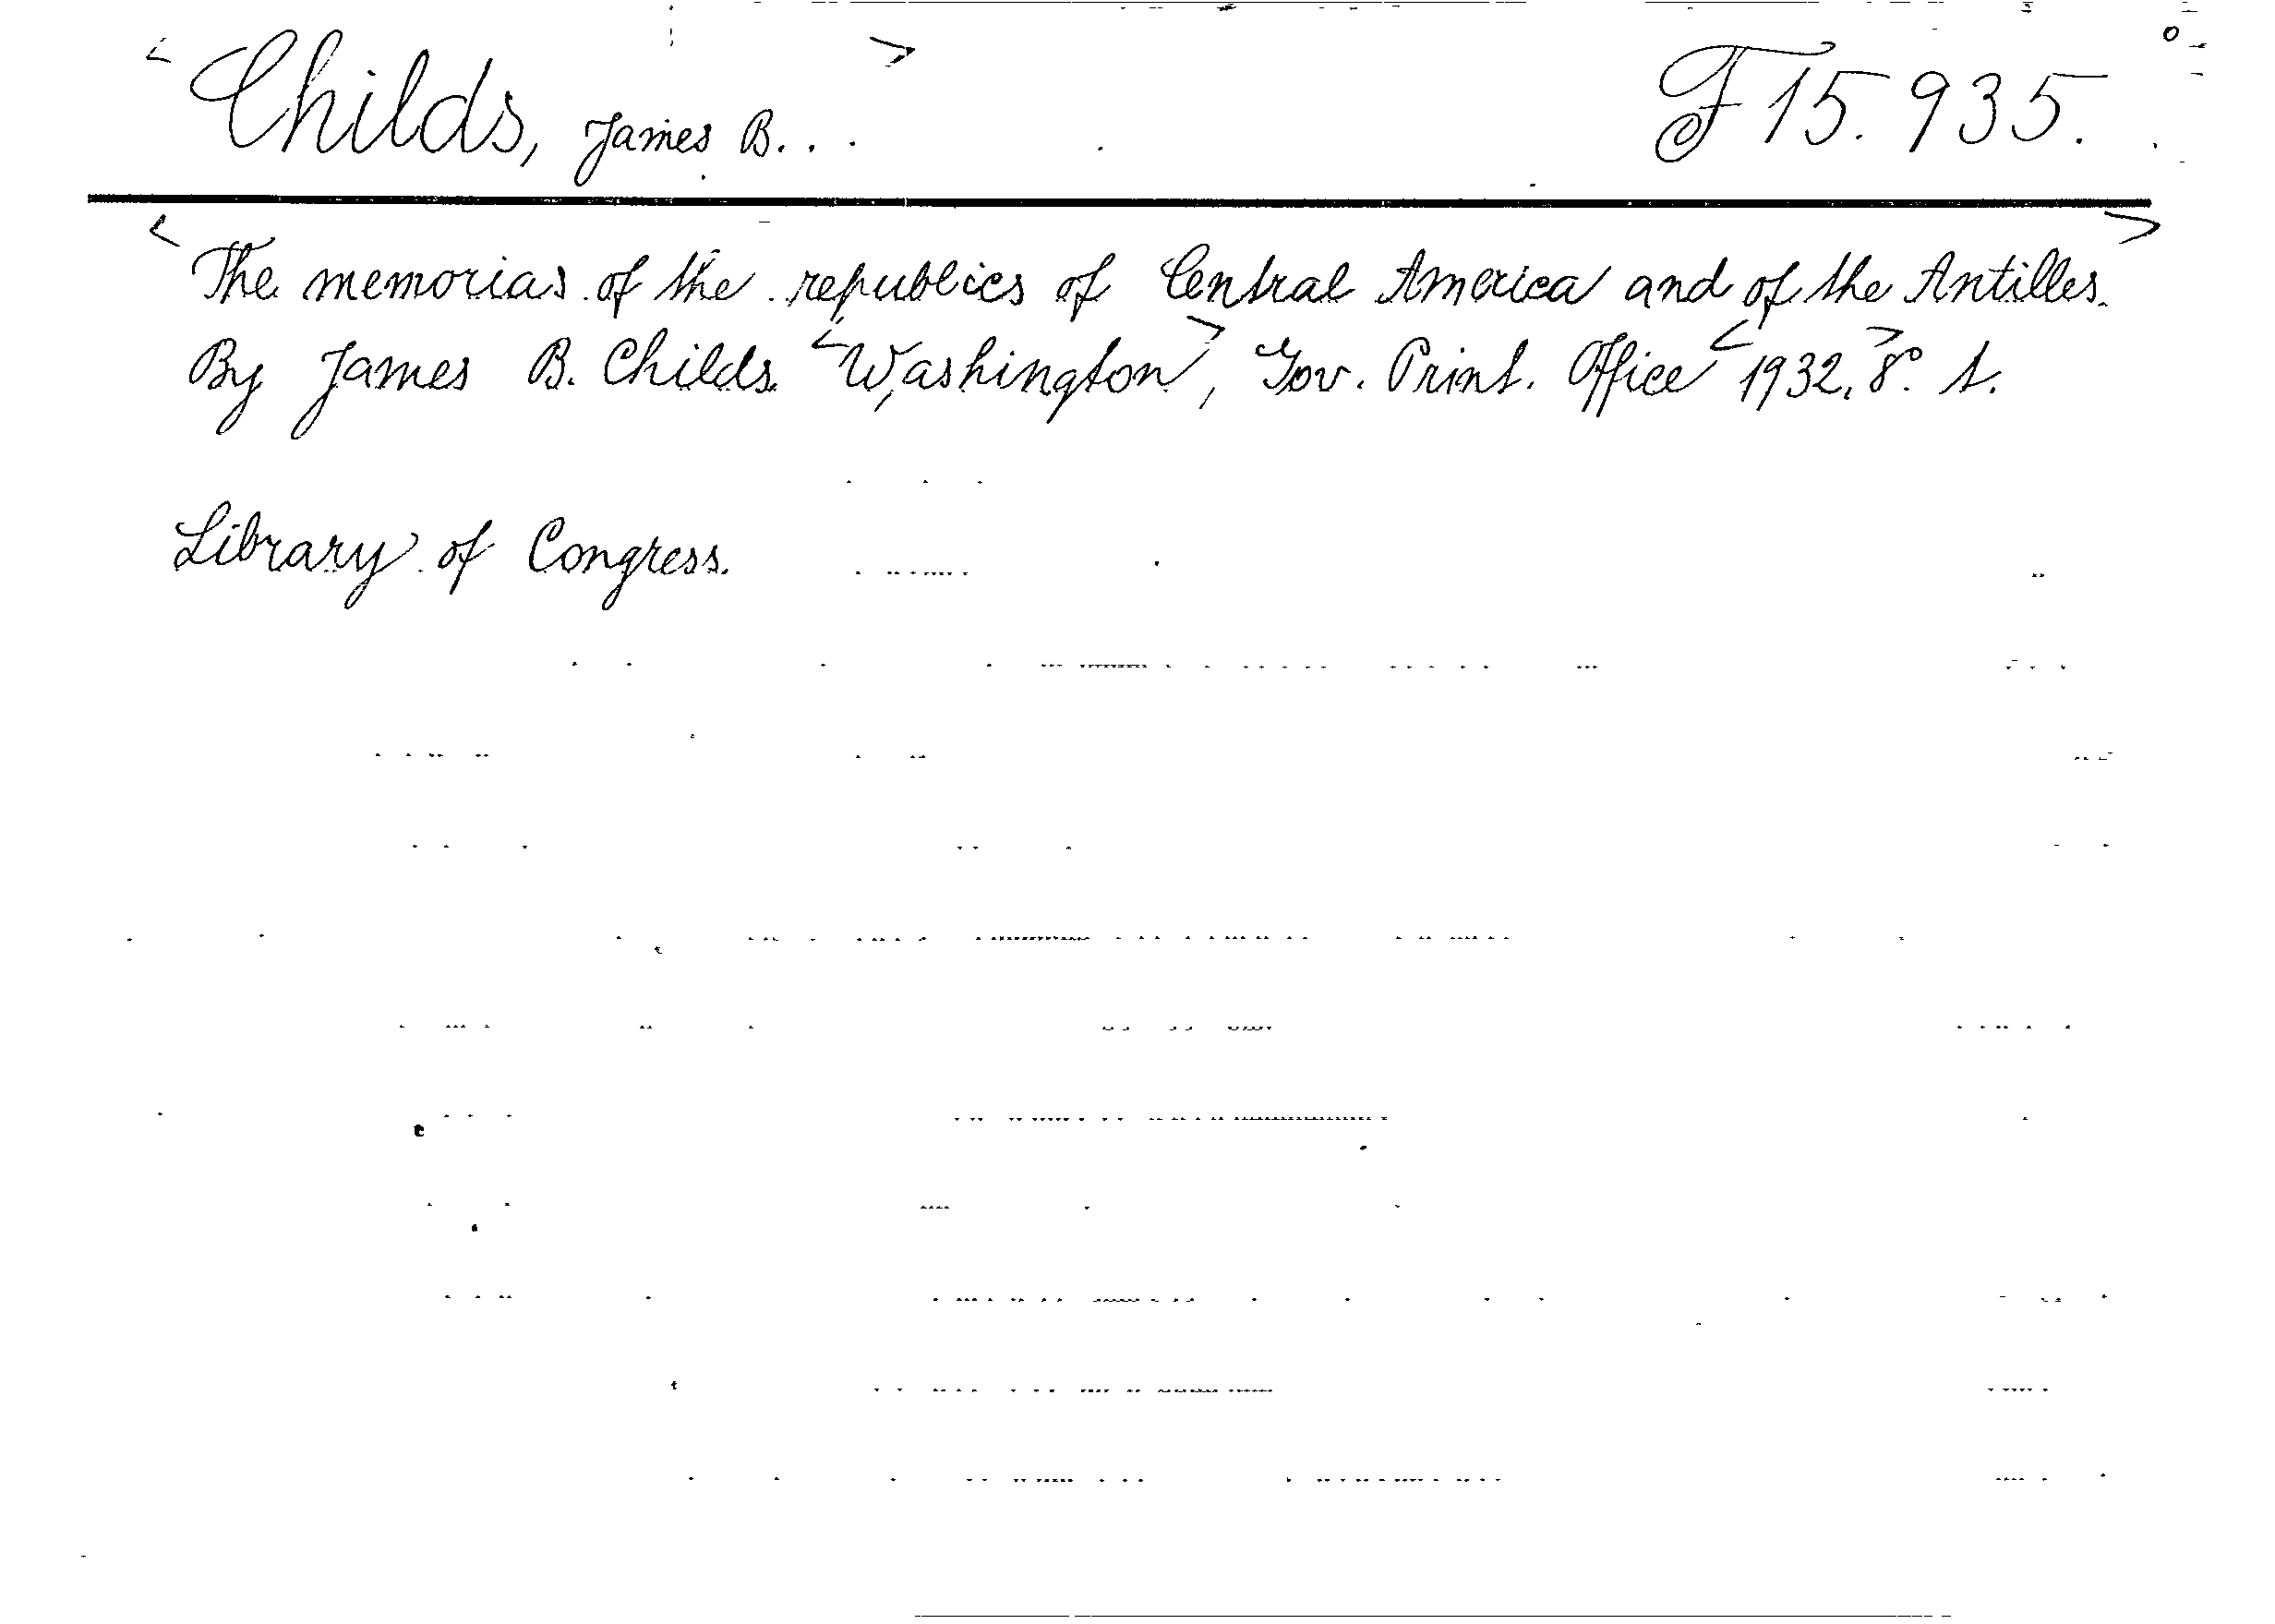 <Childs, James B...> F 15.935.
<The memorias of the republics of Central America and of the Antilles.>
By James B. Childs. <Washington>, Gov. Print. Office <1932.> 8° s.
Library of Congress.